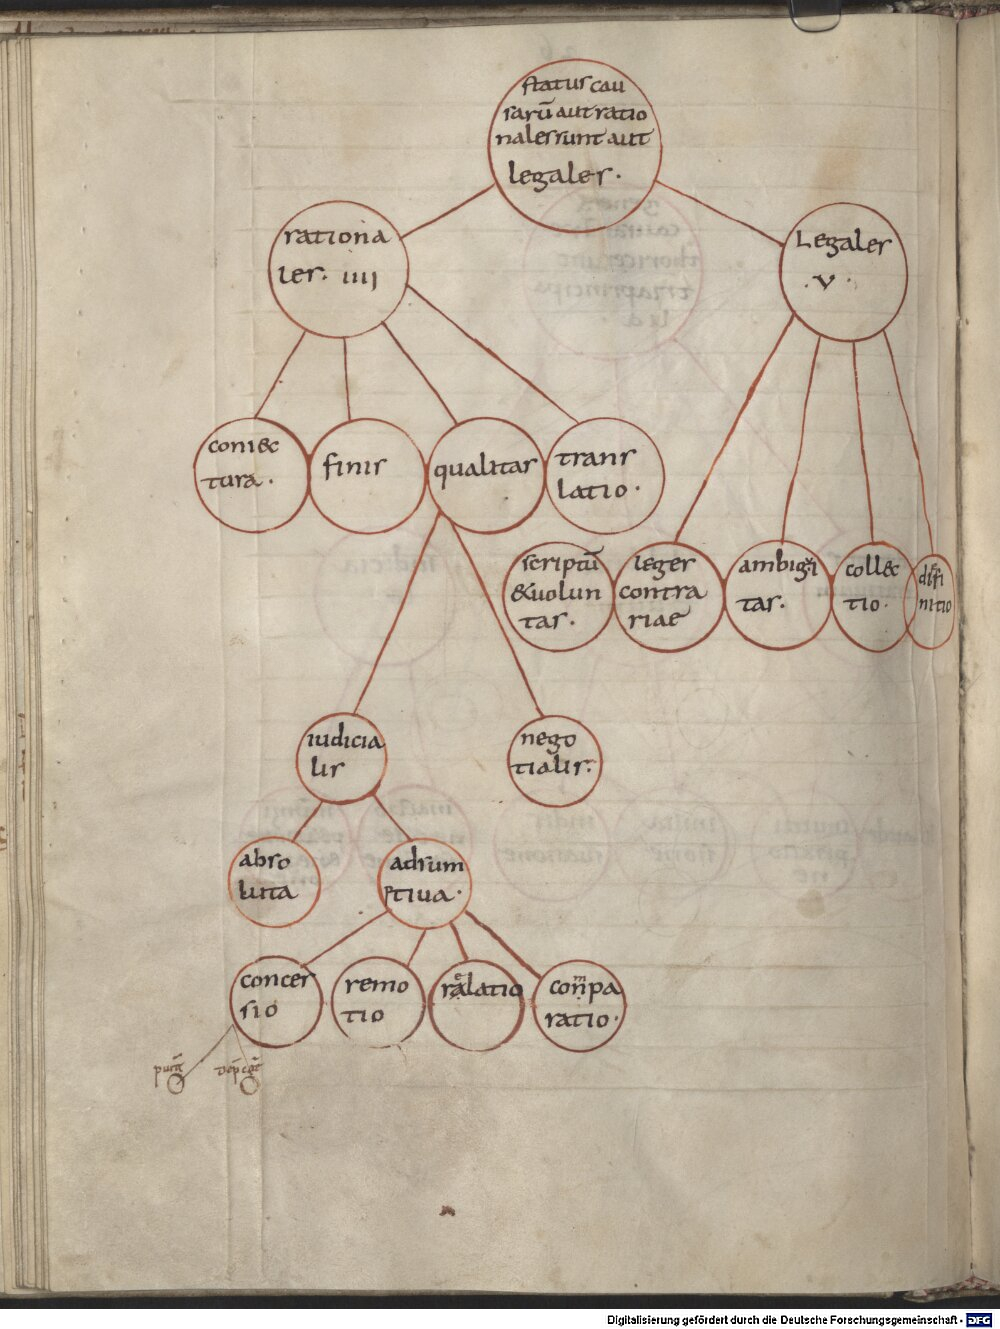 status cau
sarū aut ratio
nales sunt aut
legales·
rationa
les· IIII
Legales
·v·
coniec
tura·
finis
qualitas
trans
latio·
scriptū
& uolun
tas·
leges
contra
riae
ambigui
tas·
collec
tio·
defi
nitio
iudicia
lis
nego
tialis·
abso
luta
adsum
ptiua·
conces
sio
remo
tio
relatio
compa
ratio·
Digitalisierung gefördert durch die Deutsche Forschungsgemeinschaft - DFG